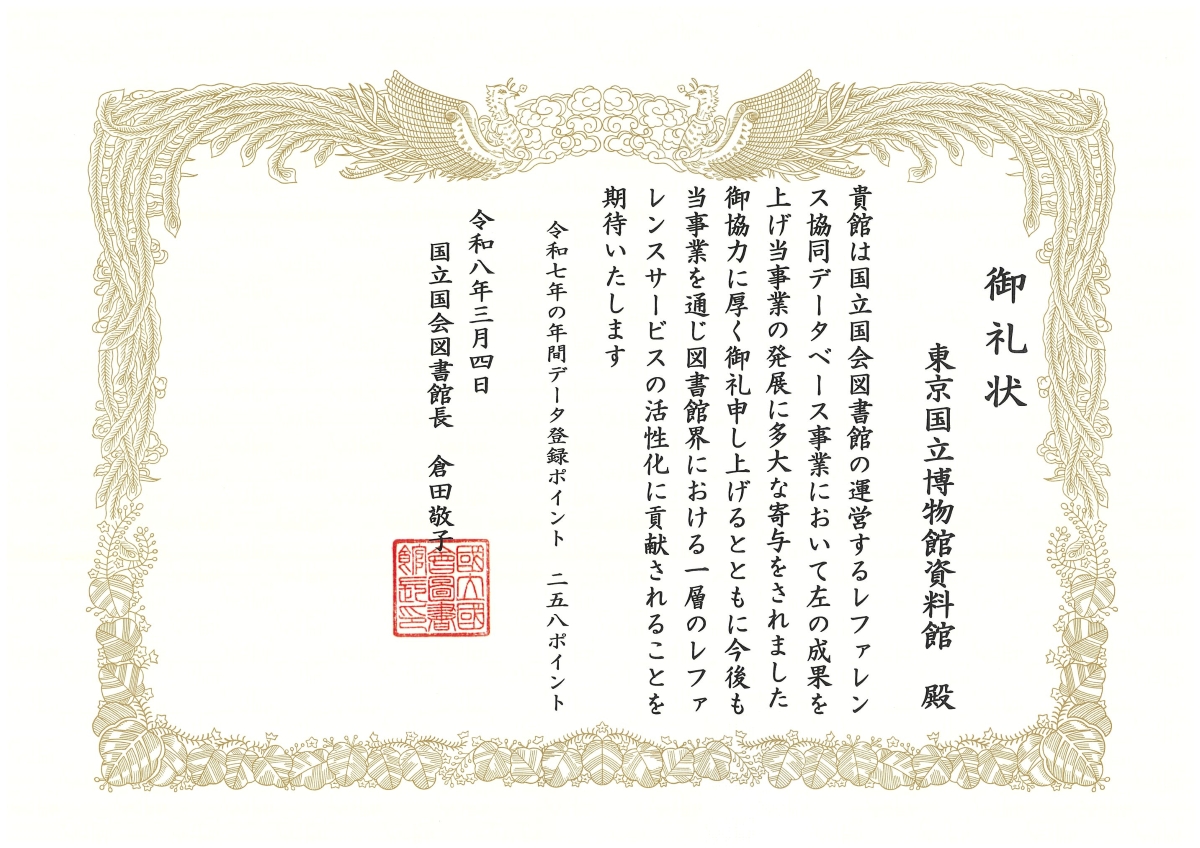 御礼状
東京国立博物館資料館　殿
貴館は国立国会図書館の運営するレファレン
ス協同データベース事業において左の成果を
上げ当事業の発展に多大な寄与をされました
御協力に厚く御礼申し上げるとともに今後も
当事業を通じ図書館界における一層のレファ
レンスサービスの活性化に貢献されることを
期待いたします
令和七年の年間データ登録ポイント　二五八ポイント
令和八年三月四日
国立国会図書館長　倉田敬子
國立國
會圖書
館長印